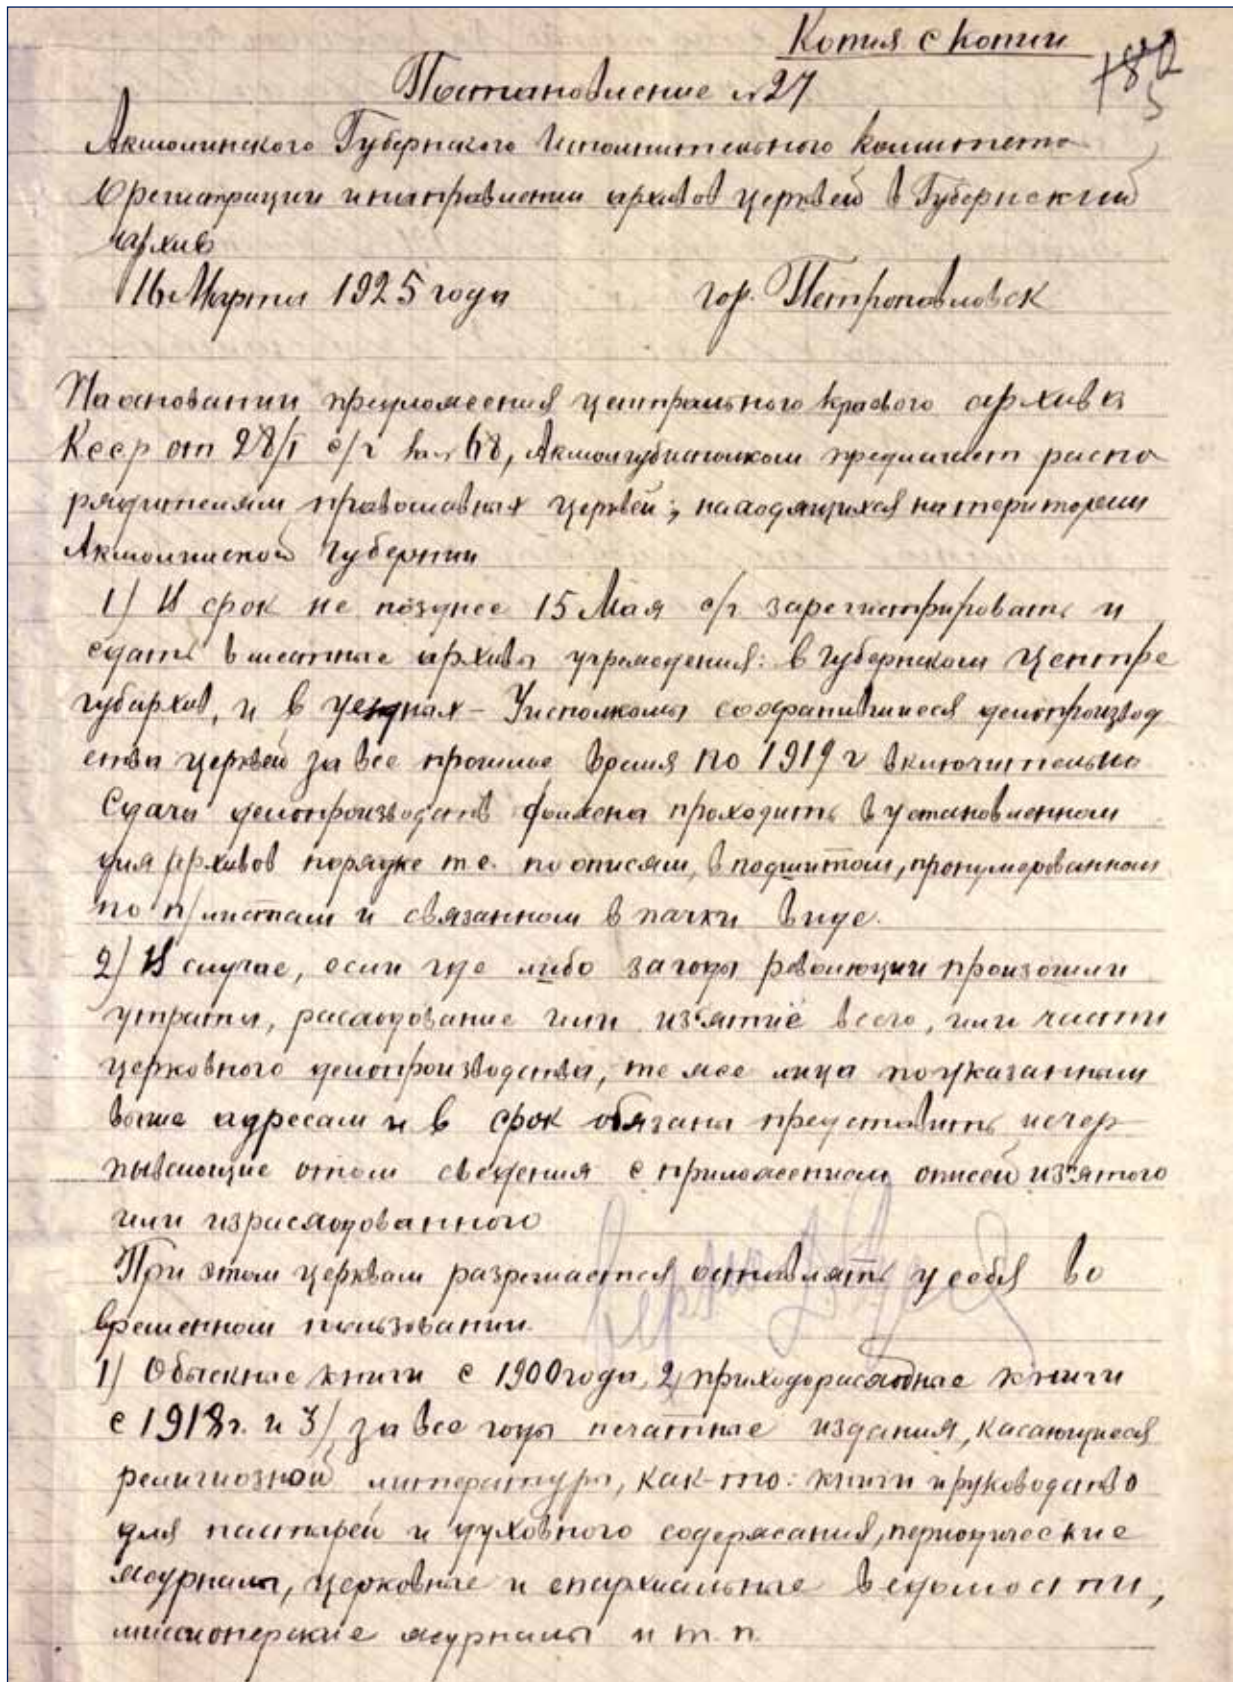 Копия с копии
Постановление № 27
Акмолинского Губернского Исполнительного комитета
О регистрации и направлении архивов церквей в Губернский
архив
16 Марта 1925 года гор. Петропавловск
На основании предложения центрального краевого архива
Ксср от 28/I с/г за № 68, Акмолгубисполком предлагает распо
рядителям православных церквей, находящихся на територии
Акмолинской губернии
1) В срок не позднее 15 Мая с/г зарегистрировать и
сдать в местные архивы учреждения: в губернском центре
губархив, и в уездных - Уисполкомы сохранившиеся делопроизвод
ства церквей за все прошлое время по 1919 г включительно
Сдача делопроизводств должна проходить в установленном
для архивов порядке т.е. по описям, в подшитом, пронумерованном
по листам и связанном в пачки виде.
2) В случае, если где либо за годы революции произошли
утраты, расходование или из'ятие всего, или части
церковного делопроизводства, те же лица по указанным
выше адресам и в срок обязаны представить исчер
пывающие о том сведения с приложением описей из'ятого
или израсходованного
При этом церквам разрешается оставлять у себя во
временном пользовании.
1) Обыскные книги с 1900 года, 2) приходорасходные книги
с 1918 г. и 3) за все годы печатные издания, касающиеся
религиозной литературы, как-то: книги и руководство
для пастырей и духовного содержания, периодические
журналы, церковные и епархиальные ведомости,
миссионерские журналы и т.п.